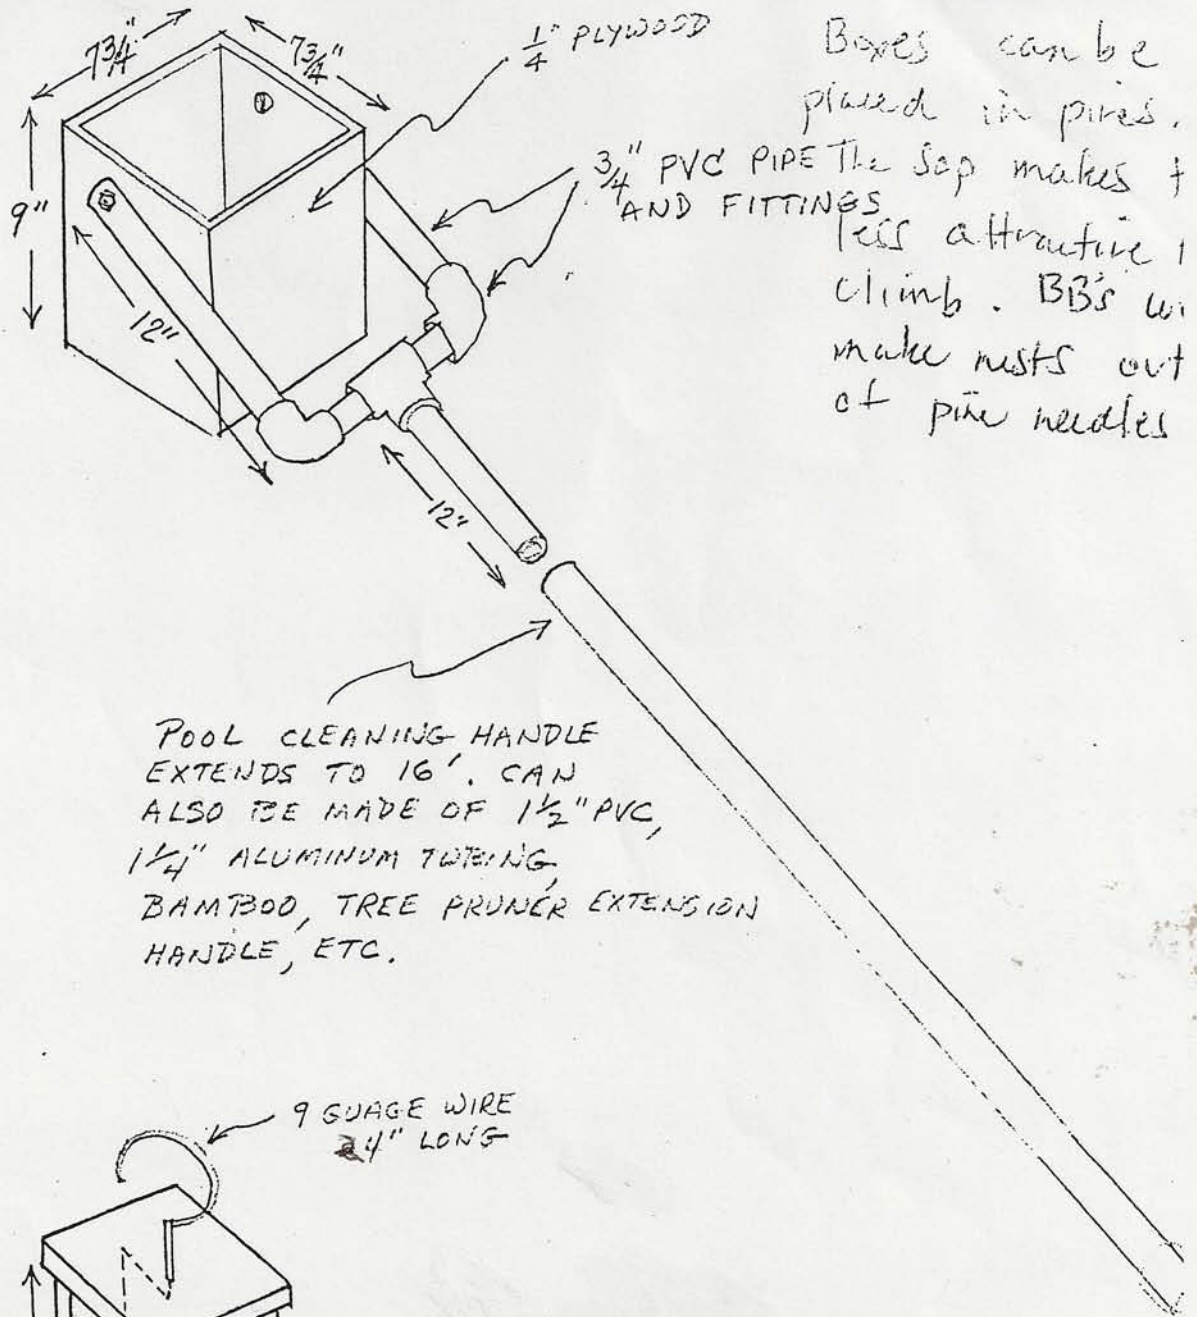 7 3/4"
7 3/4"
1/4" PLYWOOD
9"
12"
3/4" PVC PIPE
AND FITTINGS
Boxes can be
placed in pines.
The sap makes
less attractive
climb. BB's
make nests out
of pine needles
12"
POOL CLEANING HANDLE
EXTENDS TO 16'. CAN
ALSO BE MADE OF 1 1/2" PVC,
1 1/4" ALUMINUM TUBING,
BAMBOO, TREE PRUNER EXTENSION
HANDLE, ETC.
9 GUAGE WIRE
24" LONG